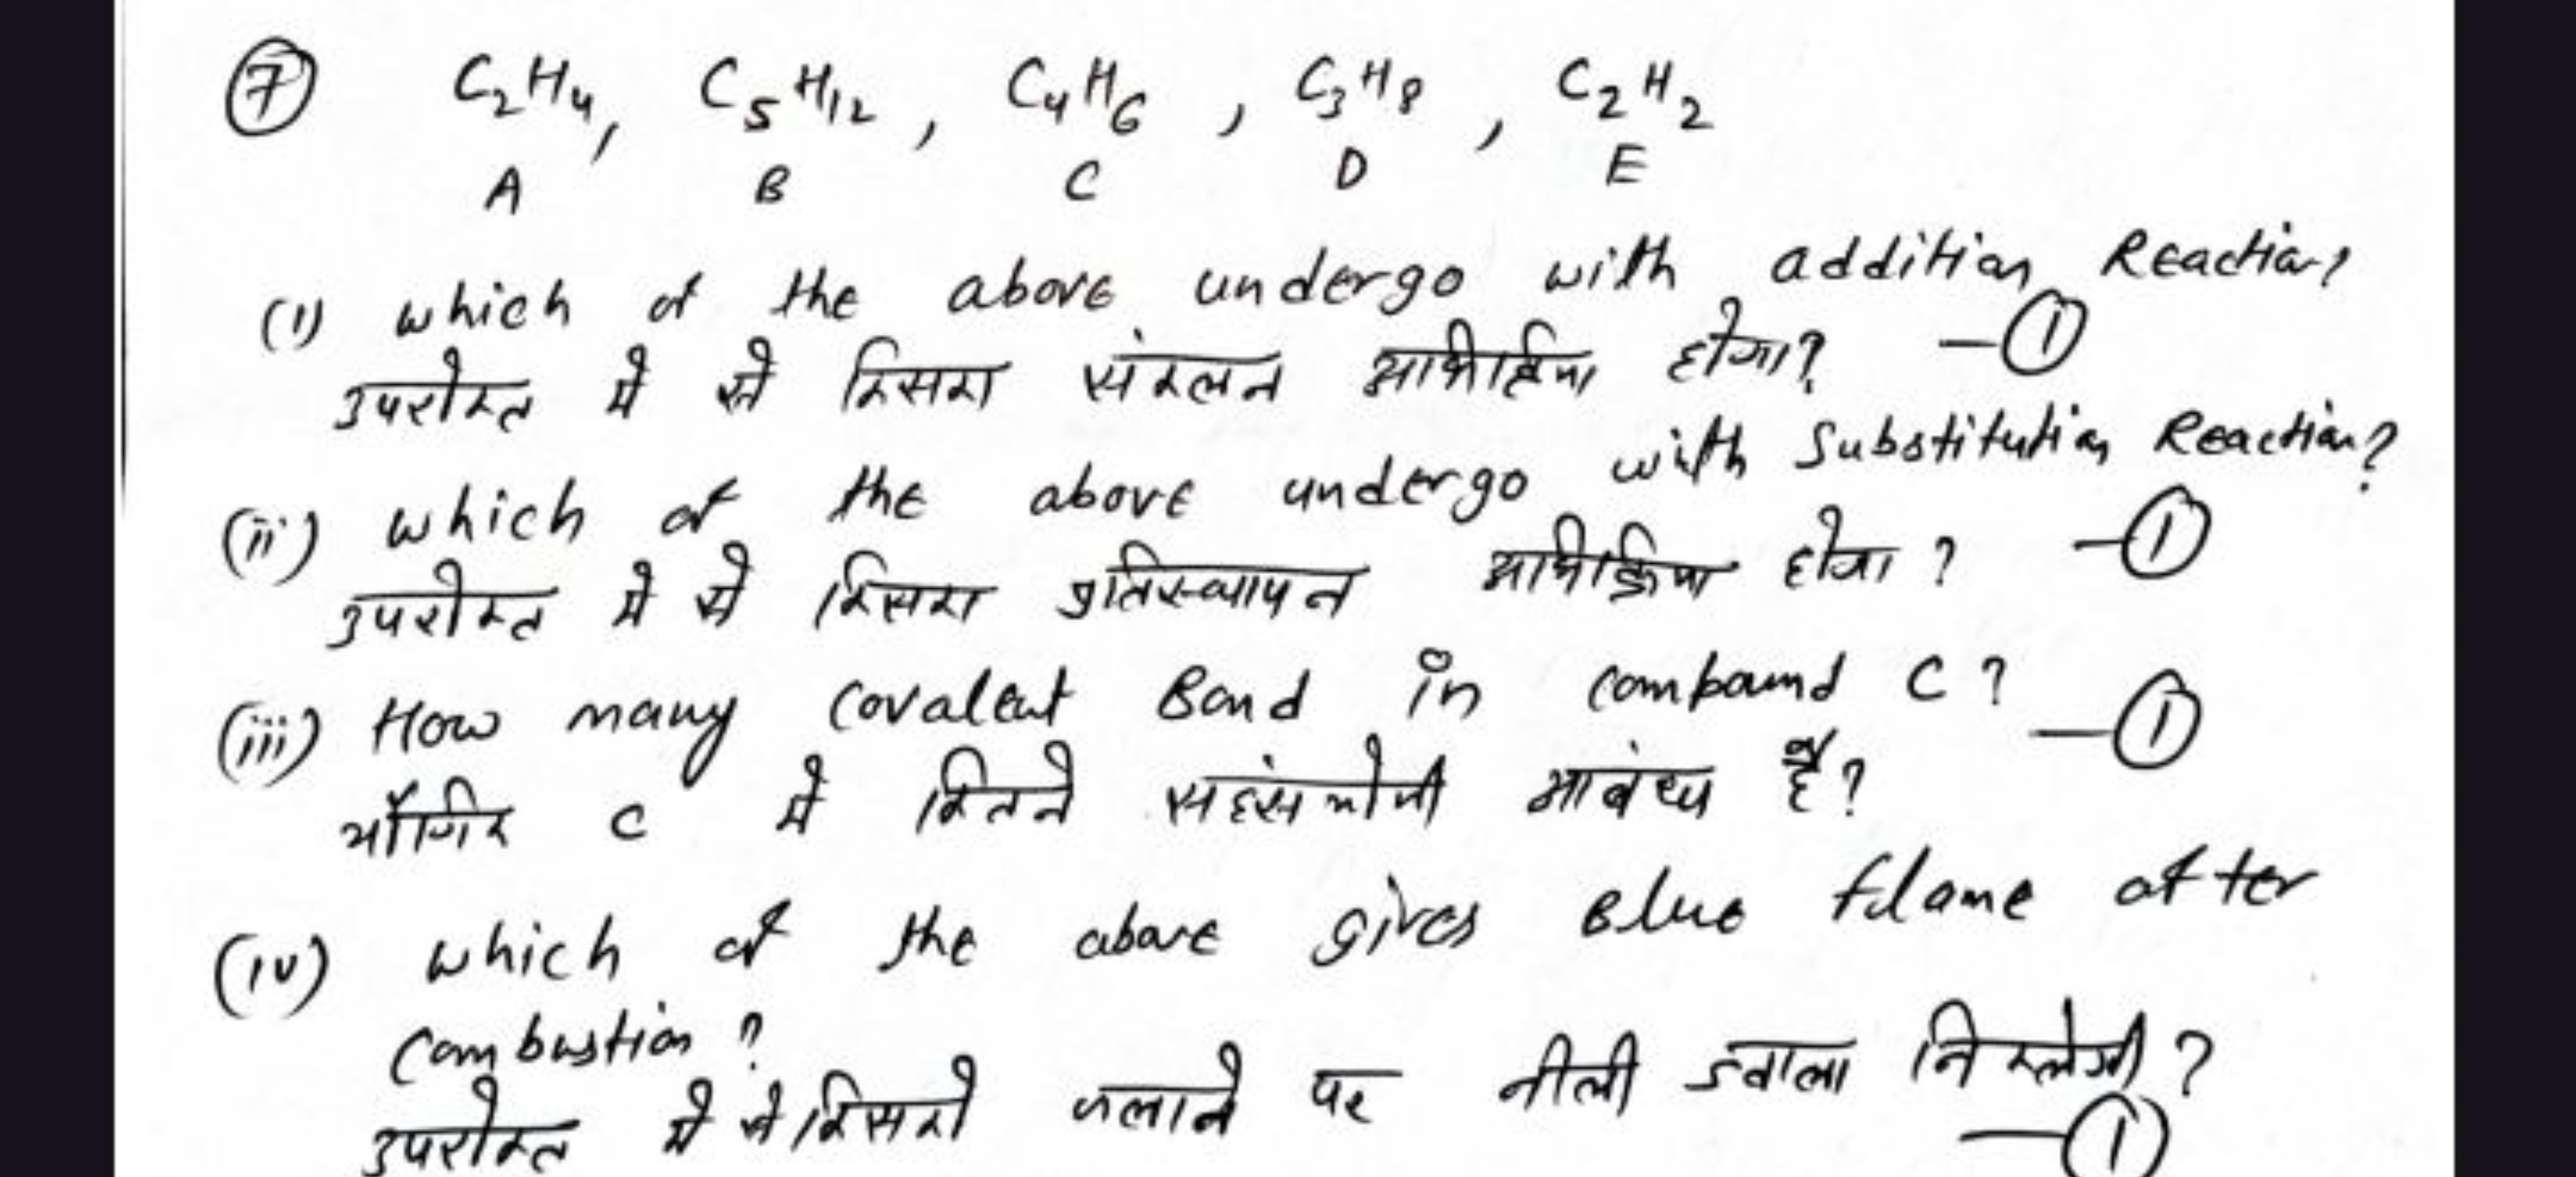 ⑦ C₂H₄, C₅H₁₂, C₄H₆, C₃H₈, C₂H₂
A B C D E
(i) which of the above undergo with addition Reaction?
उपरोक्त में से किसका संकलन अभिक्रिया होगा? -①
(ii) which of the above undergo with Substitution Reaction?
उपरोक्त में से किसका प्रतिस्थापन अभिक्रिया होगा? -①
(iii) How many covalent Bond in combound C?
यौगिक C में कितने सहसंयोजी आबंध है? -①
(iv) which of the above gives Blue flame after
combustion?
उपरोक्त में से किसको जलाने पर नीली ज्वाला निकलेगी?
-①